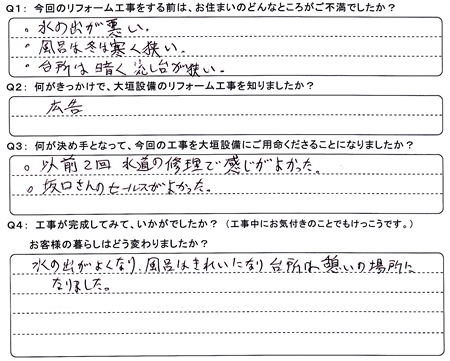 Q1: 今回のリフォーム工事をする前は、お住まいのどんなところがご不満でしたか？
。水の出が悪い.
。風呂は冬は寒く狭い.
。台所は暗く流し台が狭い.
Q2: 何がきっかけで、大垣設備のリフォーム工事を知りましたか？
広告
Q3: 何が決め手となって、今回の工事を大垣設備にご用命くださることになりましたか？
○以前2回 水道の修理で感じがよかった。
○坂口さんのセールスがよかった。
Q4: 工事が完成してみて、いかがでしたか？（工事中にお気付きのことでもけっこうです。）
お客様の暮らしはどう変わりましたか？
水の出がよくなり、風呂はきれいになり台所は憩いの場所に
なりました。